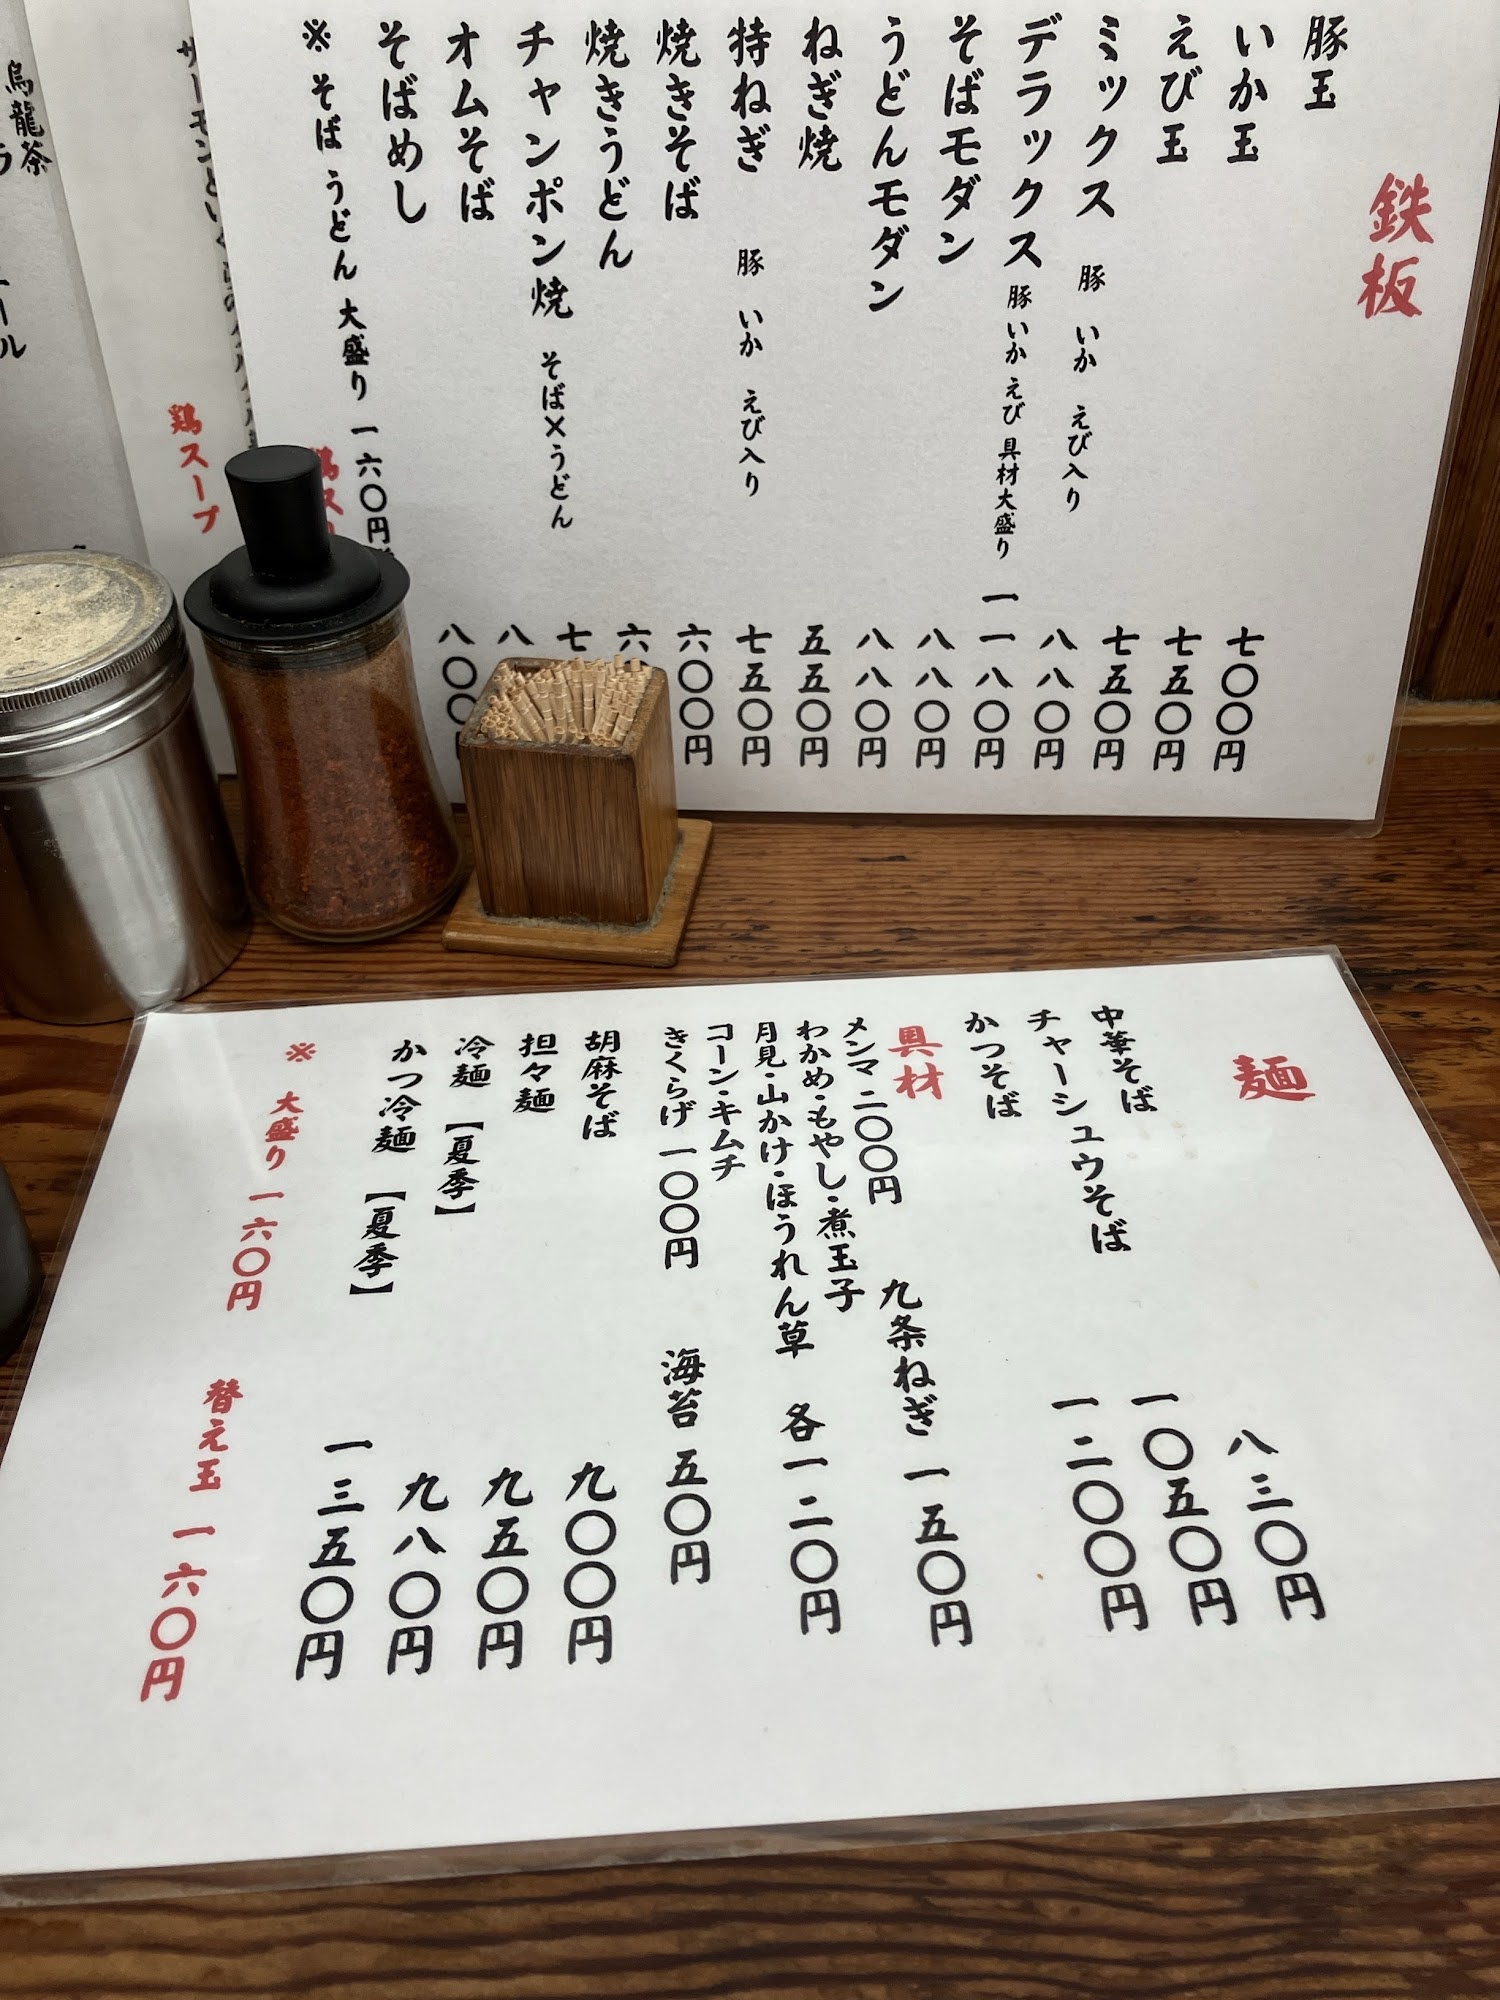 鉄板
豚玉 七〇〇円
いか玉 七五〇円
えび玉 七五〇円
ミックス 豚 いか えび入り 八八〇円
デラックス 豚 いか えび 具材大盛り 一一八〇円
そばモダン 八八〇円
うどんモダン 八八〇円
ねぎ焼 五五〇円
特ねぎ 豚 いか えび入り 七五〇円
焼きそば 六〇〇円
焼きうどん 六
チャンポン焼 そば×うどん 七
オムそば 八
そばめし 八〇〇
※ そば うどん 大盛り 一六〇円
鶏スープ
烏龍茶
麺
中華そば 八三〇円
チャーシュウそば 一〇五〇円
かつそば 一二〇〇円
具材
メンマ 二〇〇円 九条ねぎ 一五〇円
わかめ・もやし・煮玉子
月見・山かけ・ほうれん草 各一二〇円
コーン・キムチ
きくらげ 一〇〇円 海苔 五〇円
胡麻そば 九〇〇円
担々麺 九五〇円
冷麺【夏季】 九八〇円
かつ冷麺【夏季】 一三五〇円
※ 大盛り 一六〇円 替え玉 一六〇円